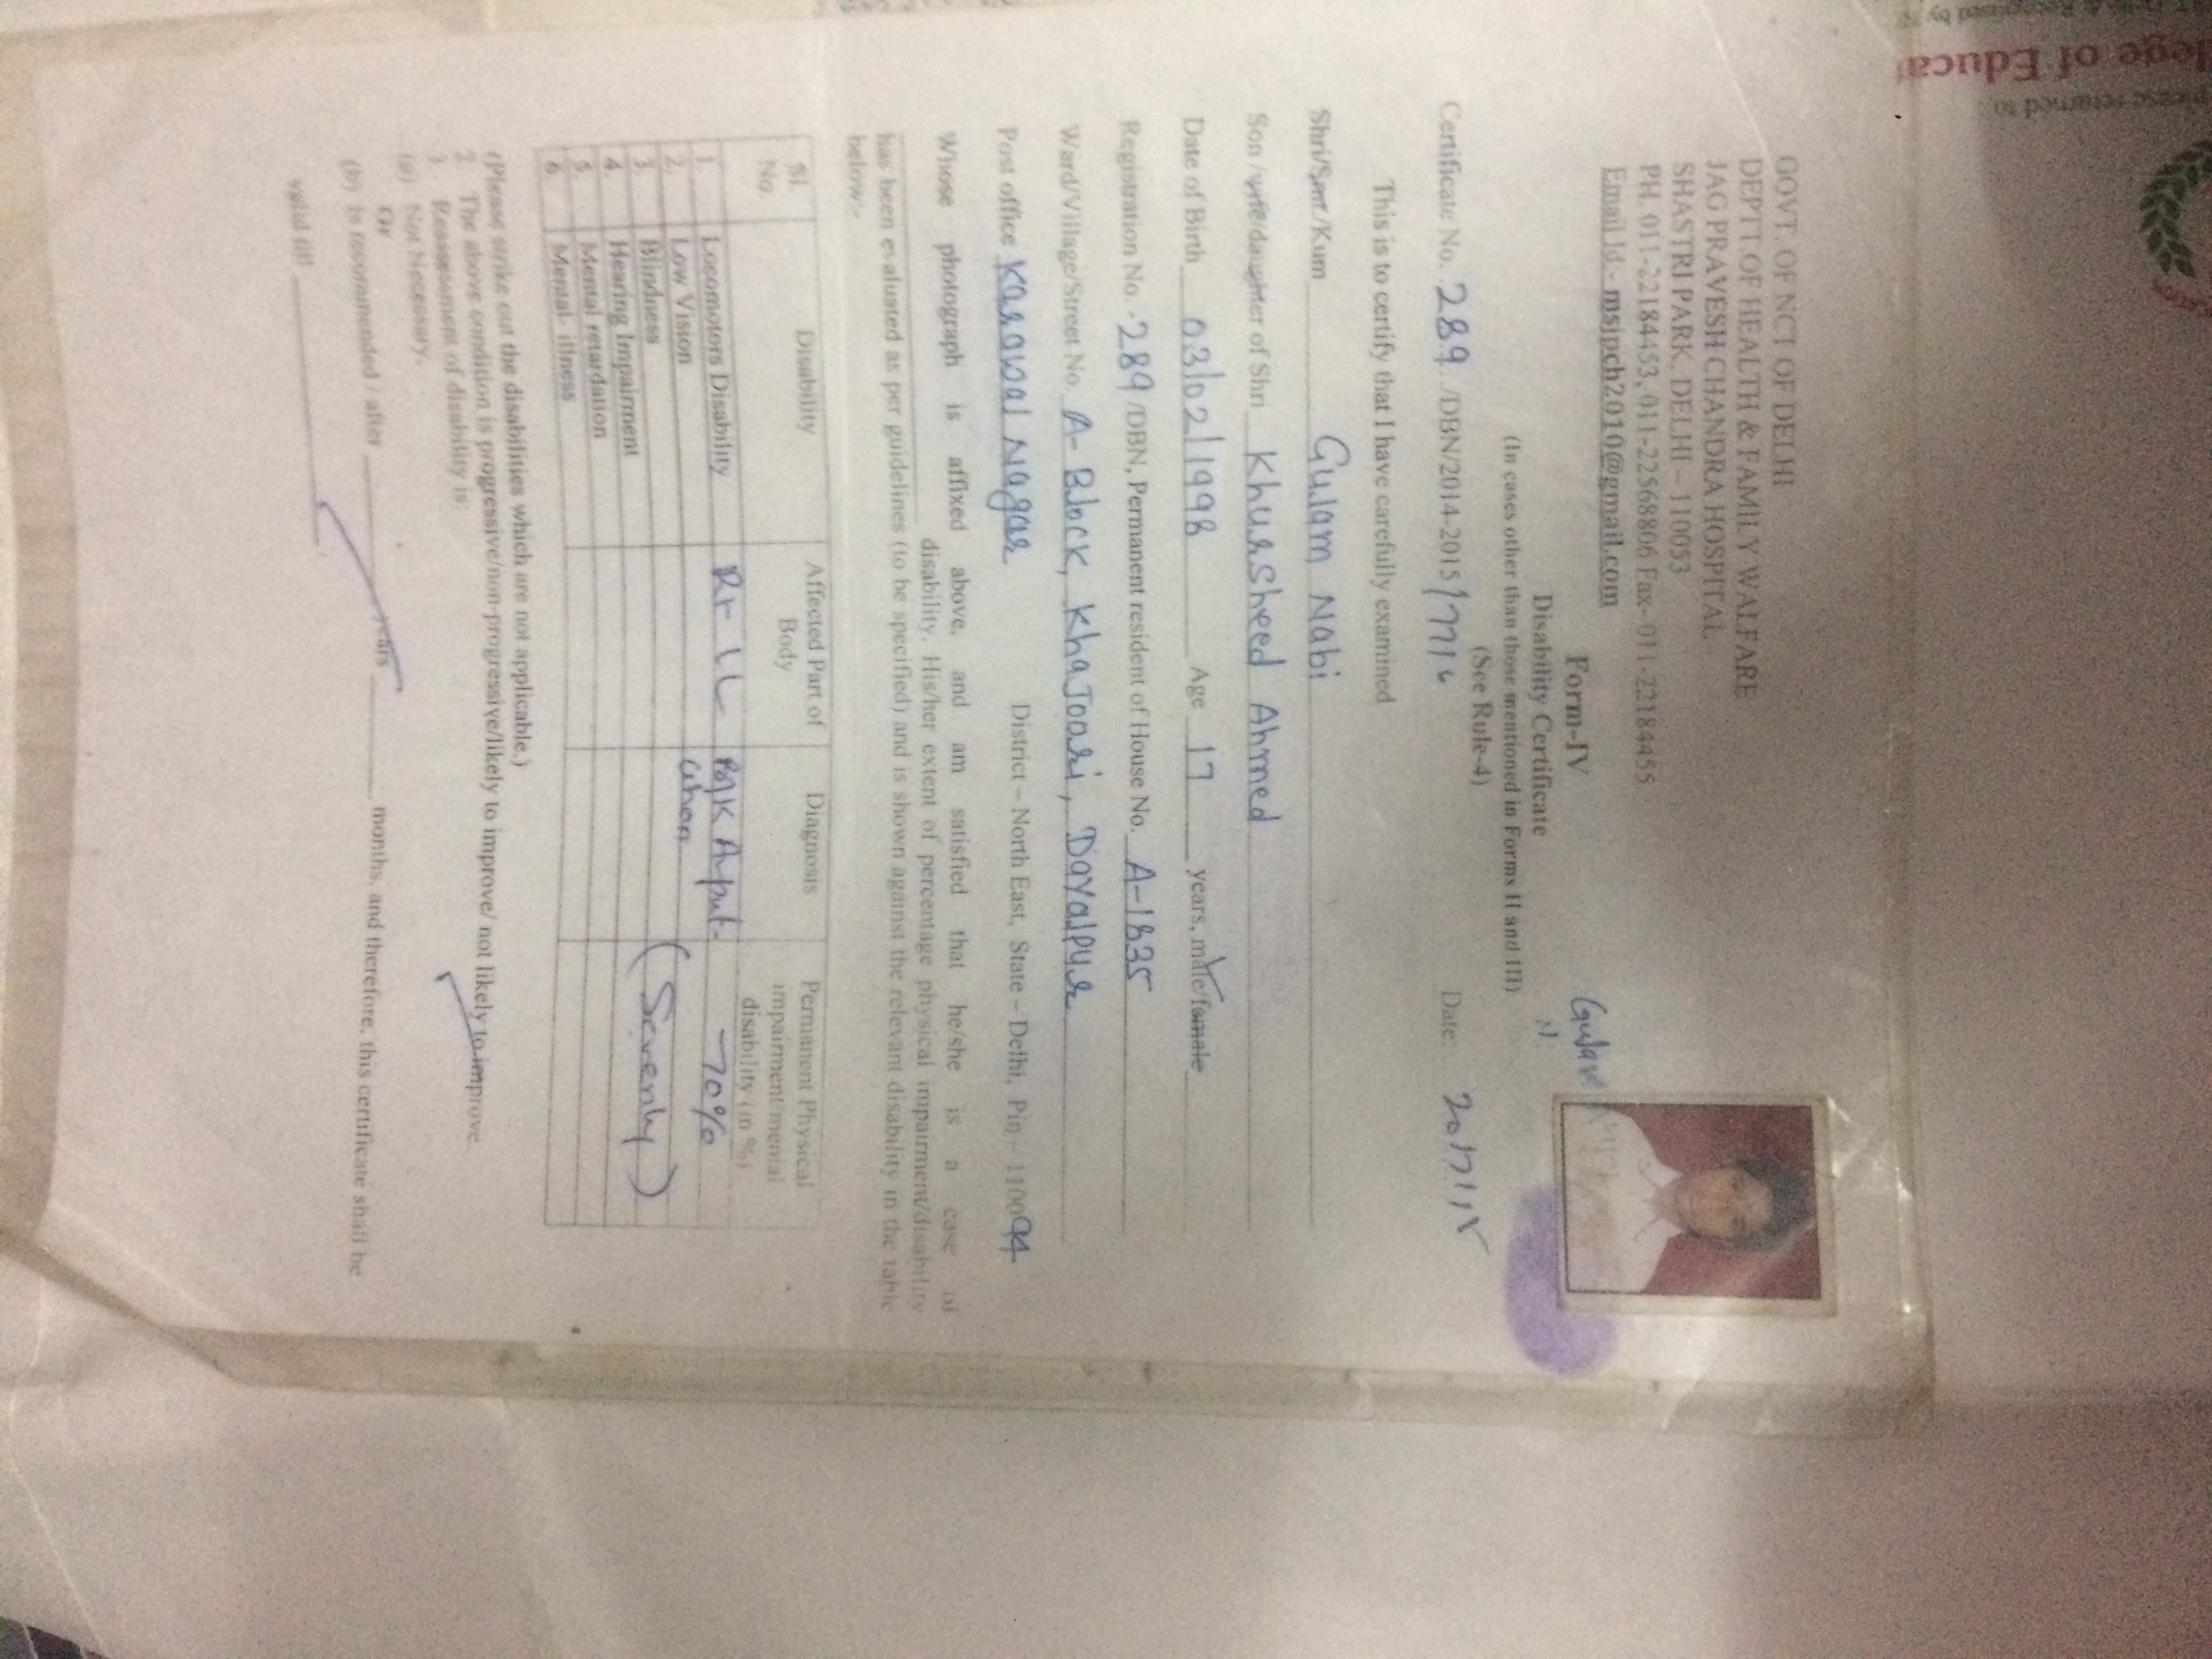 lege of Educat
please returned to :
GOVT. OF NCT OF DELHI
DEPTT OF HEALTH & FAMILY WALFARE
JAG PRAVESH CHANDRA HOSPITAL
SHASTRI PARK, DELHI – 110053
PH. 011-22184453, 011-22568806 Fax- 011-22184455
Email Id.- msjpch2010@gmail.com
Form-IV
Disability Certificate
(In cases other than those mentioned in Forms II and III)
(See Rule-4)
Certificate No. 289 /DBN/2014-2015 Date:
This is to certify that I have carefully examined
Shri/Smt./Kum Gulam Nabi
Son /wife/daughter of Shri Khursheed Ahmed
Date of Birth 03/02/1998 Age 17 years, male/female
Registration No.-289/DBN, Permanent resident of House No. A-1835
Ward/Village/Street No. A-Block, Khajoori, Dayalpur
Post office Karawal Nagar District – North East, State – Delhi, Pin – 110094
Whose photograph is affixed above, and am satisfied that he/she is a case of
disability. His/her extent of percentage physical impairment/disability
has been evaluated as per guidelines (to be specified) and is shown against the relevant disability in the table
below:-
Sl No. Disability Affected Part of Body Diagnosis Permanent Physical impairment/mental disability (in %)
1. Locomotors Disability Rt LL 70%
2. Low Vision
3. Blindness
4. Hearing Impairment
5. Mental retardation
6. Mental- illness
(Please strike out the disabilities which are not applicable.)
2. The above condition is progressive/non-progressive/likely to improve/ not likely to improve.
3. Reassessment of disability is:
(a) Not Necessary.
Or
(b) is recommended / after years months, and therefore, this certificate shall be
valid till